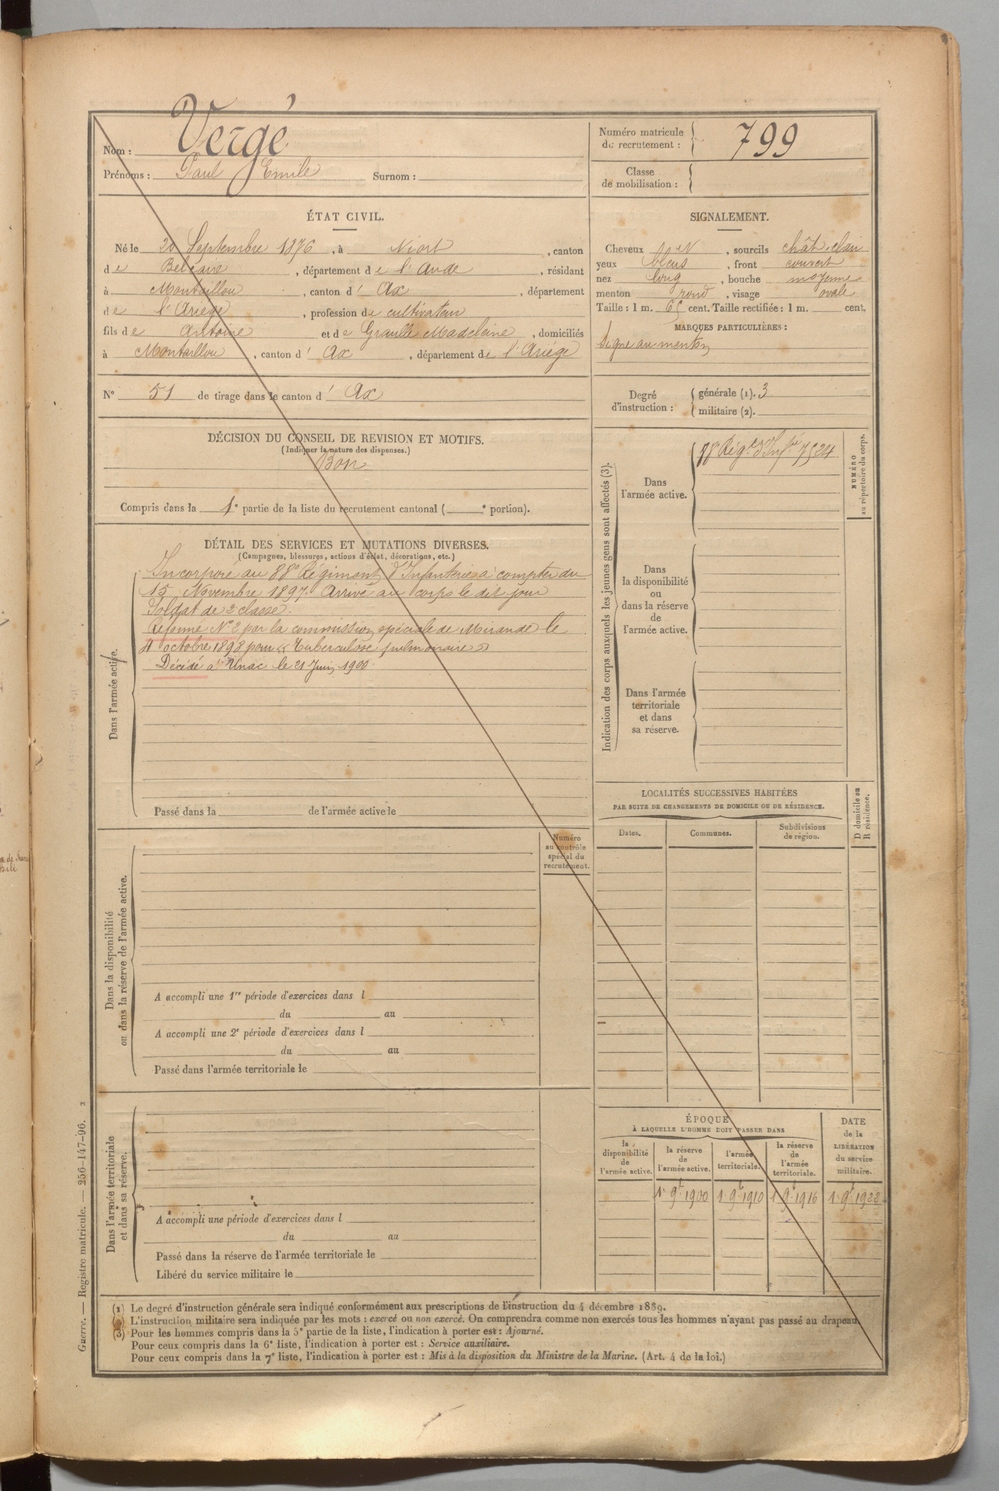 Nom : Vergé
Prénoms : Paul Emile Surnom :
Numéro matricule
de recrutement : 799
Classe
de mobilisation :
ÉTAT CIVIL.
Né le Septembre 1876, à Niort, canton
de Belcaire, département de l'Aude, résidant
à Montaillou, canton d' Ax, département
de l'Ariège, profession de cultivateur
fils de Antoine et de Graulle Madelaine, domiciliés
à Montaillou, canton d' Ax, département de l'Ariège
N° 51 de tirage dans le canton d' Ax
DÉCISION DU CONSEIL DE REVISION ET MOTIFS.
(Indiquer la nature des dispenses.)
Bon
Compris dans la 1e partie de la liste du recrutement cantonal ( e portion).
SIGNALEMENT.
Cheveux , sourcils chât. clair
yeux bleus, front couvert
nez long, bouche moyenne
menton rond, visage ovale
Taille : 1 m. cent. Taille rectifiée : 1 m. cent.
MARQUES PARTICULIÈRES :
Signe au menton
Degré
d'instruction :
générale (1). 3
militaire (2).
DÉTAIL DES SERVICES ET MUTATIONS DIVERSES.
(Campagnes, blessures, actions d'éclat, décorations, etc.)
Dans l'armée active.
Incorporé au 88e Régiment d'Infanterie à compter du
15 Novembre 1897. Arrivé au corps le dit jour
Soldat de 2e classe.
Réformé N° 2 par la commission spéciale de Mirande le
octobre 1898 pour « Tuberculose pulmonaire »
Décédé à Unac le 21 Juin 1900.
Passé dans la de l'armée active le
Indication des corps auxquels les jeunes gens sont affectés (3).
NUMÉRO
au répertoire du corps.
Dans
l'armée active.
88 Régt d'Infie 7524
Dans
la disponibilité
ou
dans la réserve
de
l'armée active.
Dans l'armée
territoriale
et dans
sa réserve.
LOCALITÉS SUCCESSIVES HABITÉES
PAR SUITE DE CHANGEMENTS DE DOMICILE OU DE RÉSIDENCE.
Dates.
Communes.
Subdivisions
de région.
D domicile ou
R résidence.
Dans la disponibilité
ou dans la réserve de l'armée active.
Numéro
au contrôle
spécial du
recrutement.
A accompli une 1re période d'exercices dans l
du au
A accompli une 2e période d'exercices dans l
du au
Passé dans l'armée territoriale le
Dans l'armée territoriale
et dans sa réserve.
A accompli une période d'exercices dans l
du au
Passé dans la réserve de l'armée territoriale le
Libéré du service militaire le
ÉPOQUE
À LAQUELLE L'HOMME DOIT PASSER DANS
la
disponibilité
de
l'armée active.
la réserve
de
l'armée active.
l'armée
territoriale.
la réserve
de
l'armée
territoriale.
DATE
de la
LIBÉRATION
du service
militaire.
1r 9bre 1900 1r 9bre 1910 1r 9bre 1916 1r 9bre 1922
(1) Le degré d'instruction générale sera indiqué conformément aux prescriptions de l'instruction du 4 décembre 1889.
(2) L'instruction militaire sera indiquée par les mots : exercé ou non exercé. On comprendra comme non exercés tous les hommes n'ayant pas passé au drapeau.
(3) Pour les hommes compris dans la 5e partie de la liste, l'indication à porter est : Ajourné.
Pour ceux compris dans la 6e liste, l'indication à porter est : Service auxiliaire.
Pour ceux compris dans la 7e liste, l'indication à porter est : Mis à la disposition du Ministre de la Marine. (Art. 4 de la loi.)
Guerre. — Registre matricule. — 256-147-96. 2